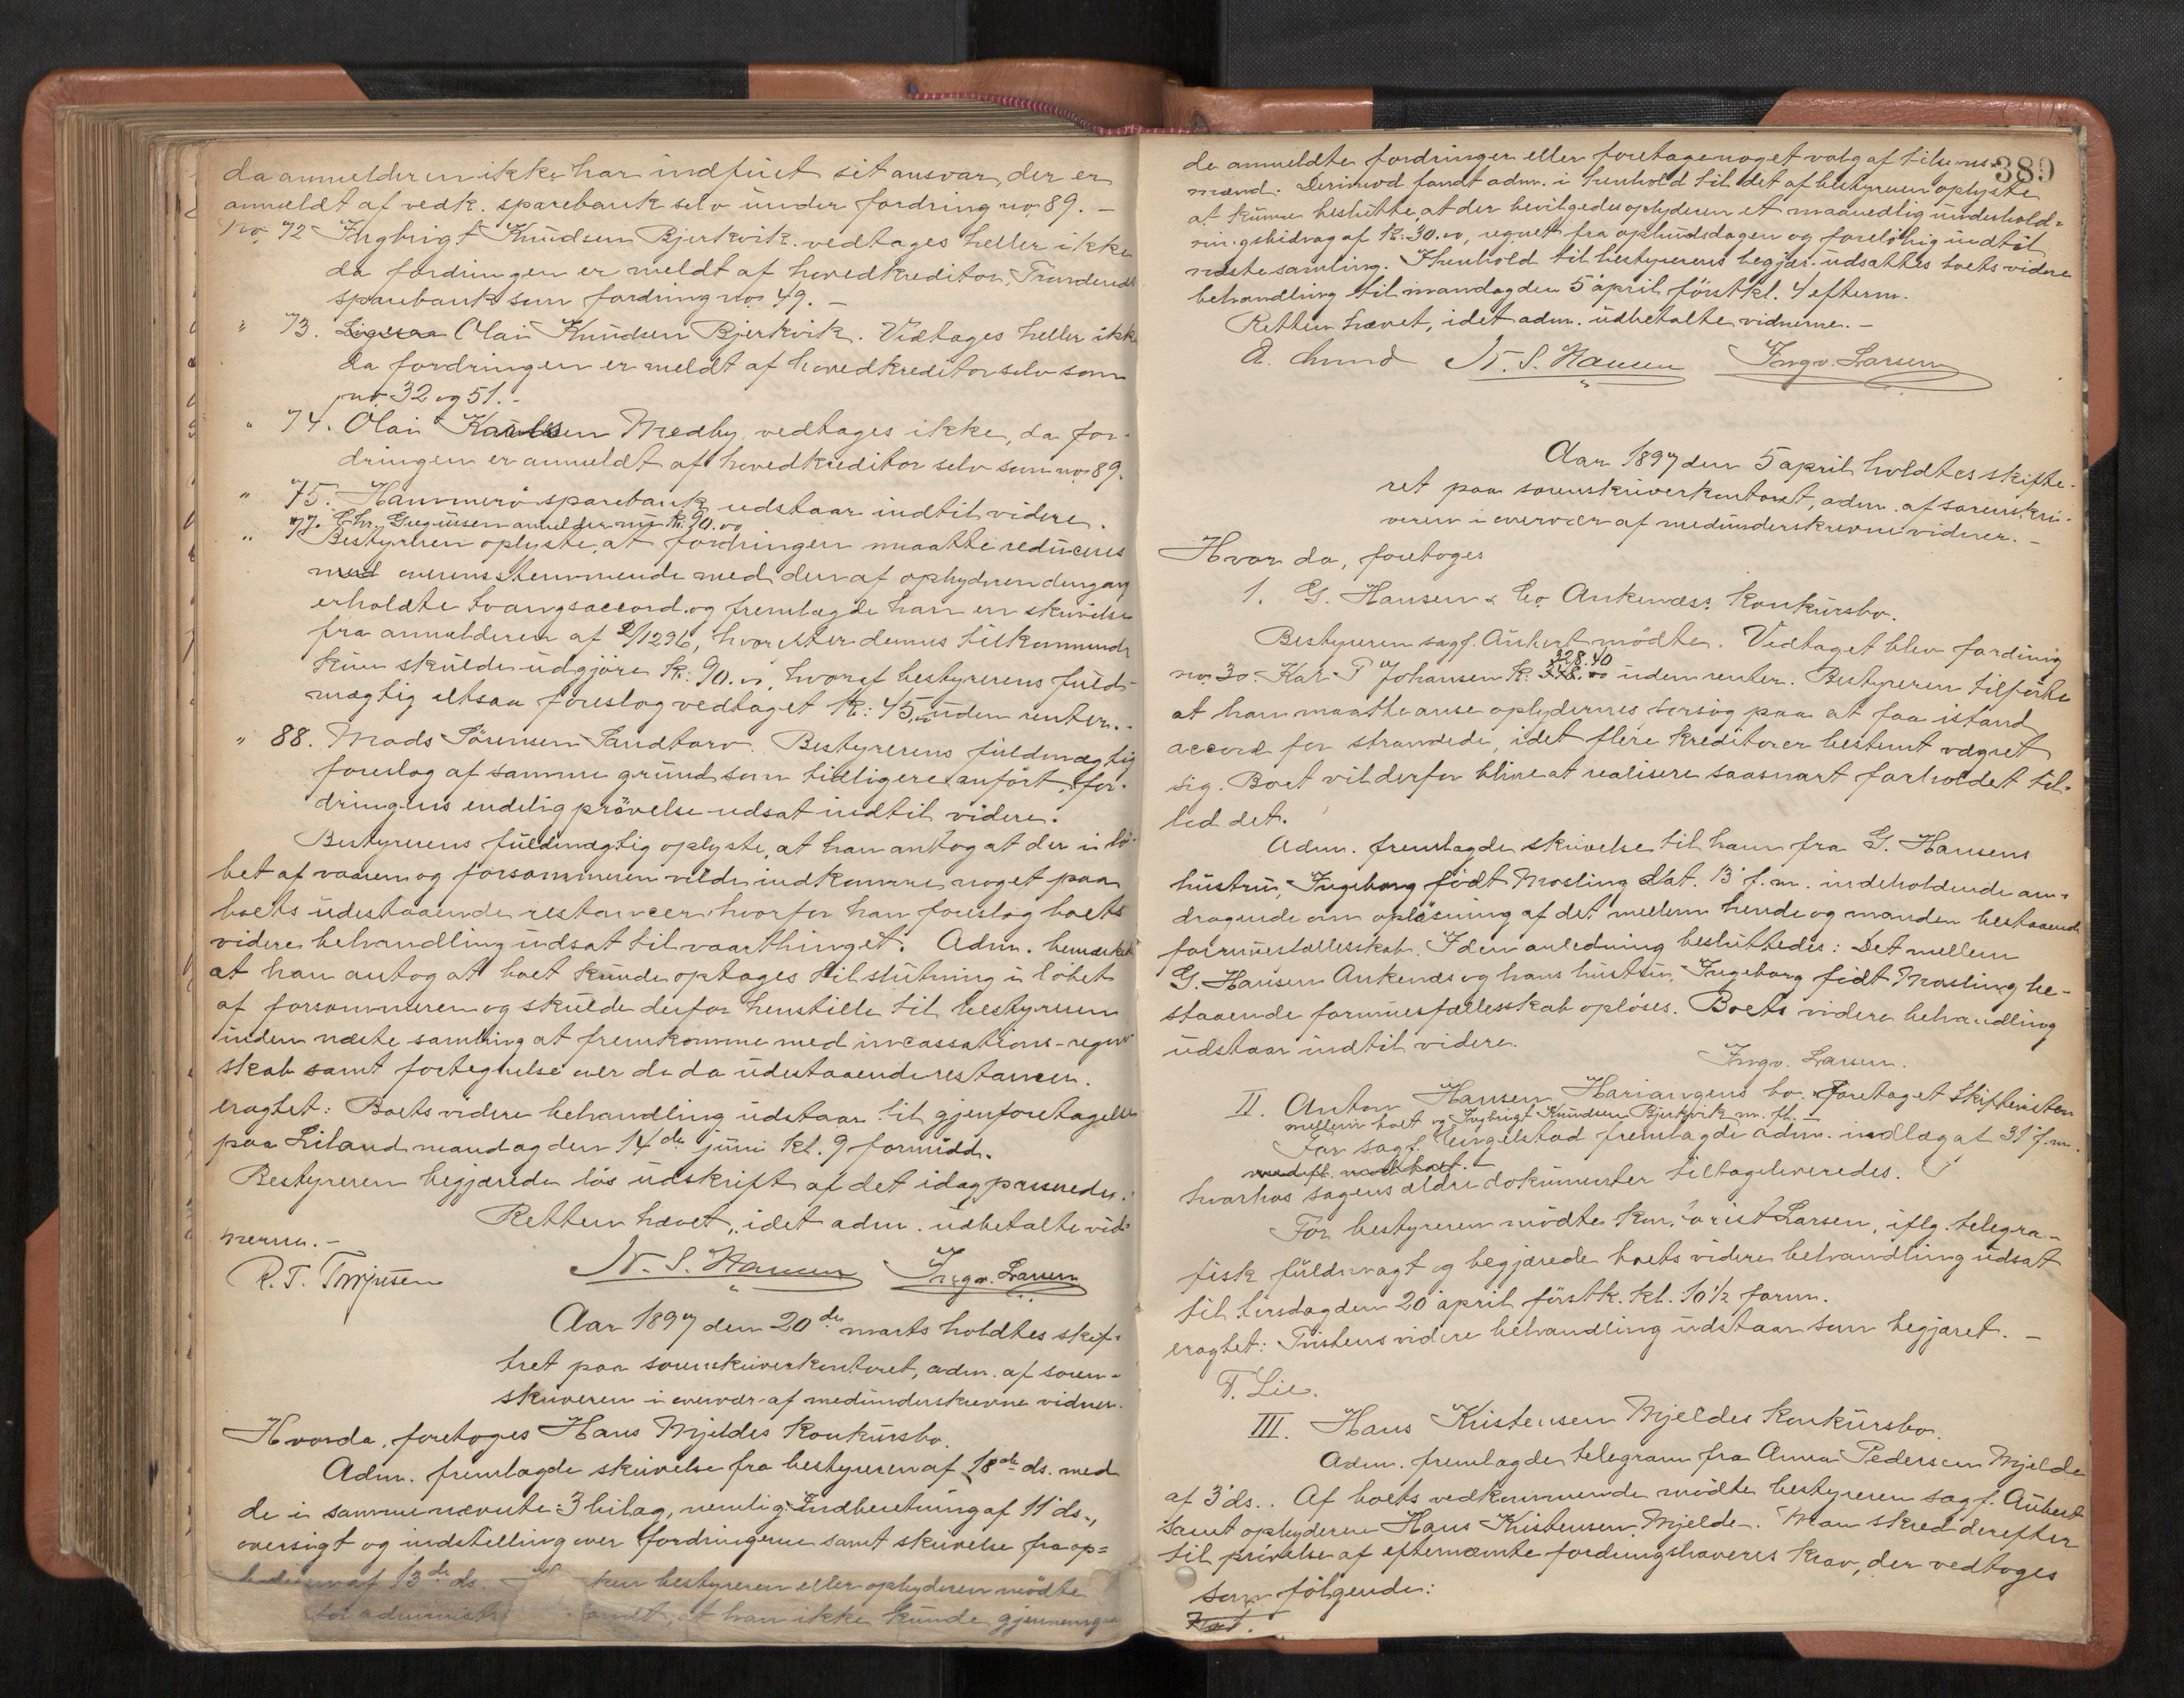 da anmelderen ikke har indfriet sit ansvar, der er
anmeldt af vedk. sparebank selv under fordring no 89. –
No. 72 Ingbrigt Knudsen Bjerkvik. vedtages heller ikke
da fordringen er meldt af hovedkreditor, Trondenes
sparebank som fordring no 49. –
" 73. Olai Knudsen Bjerkvik. Vedtages heller ikke
da fordringen er meldt af hovedkreditor selv som
no 32 og 51. –
" 74. Olai Medby, vedtages ikke, da for-
dringen er anmeldt af hovedkreditor selv som no 89.
" 75. Hammerö sparebank udstaar indtil videre.
" 77. Chr. Gregussen anmelder nu kr. 90.00
Bestyreren oplyste, at fordringen maatte reduceres
med overensstemmende med den af opbyderen dengang
erholdte tvangsaccord. og fremlagde han en skrivelse
fra anmelderen af 2/12 96, hvorefter dennes tilkommende
kun skulde udgjöre kr: 90.00, hvoraf bestyrerens fuld-
mægtig altsaa foreslog vedtaget kr: 45,00 uden renter. –
" 88. Mads Sörensen Sandtorv. Bestyrerens fuldmægtig
foreslog af samme grund som tidligere anfört, for-
dringens endelig prövelse udsat indtil videre.
Bestyrerens fuldmægtig oplyste, at han antog at der i lö-
bet af vaaren og forsommeren vilde indkomme noget paa
boets udestaaende restancer, hvorfor han foreslog boets
videre behandling udsat til vaarthinget. Adm. bemærkede
at han antog at boet kunde optages til slutning i löbet
af forsommeren og skulde derfor henstille til bestyreren
inden næste samling at fremkomme med incassations-regn-
skab samt fortegnelse over de da udestaaende restancer.
eragtet: Boets videre behandling udstaar til gjenforetagelse
paa Liland mandag den 14de juni kl. 9 formidd.
Bestyreren begjærede lös udskrift af det idag passerede.
Retten hævet, idet adm. udbetalte vid-
nerne. –
R. T. Torjusen N. S. Hansen Ingv. Larsen
Aar 1897 den 20de marts holdtes skif-
tret paa sorenskriverkontoret, adm. af soren-
skriveren i overvær af medunderskrevne vidner.
Hvorda, foretoges Hans Mjeldes konkursbo.
Adm. fremlagde skrivelse fra bestyreren af 18de ds. med
de i samme nævnte 3 bilag, nemlig: Indberetning af 11' ds.,
oversigt og indstilling over fordringerne samt skrivelse fra op=
byderen af 13de ds. ken bestyreren eller opbyderen mödte
for administ andt, at han ikke kunde gjennemgaa
389
de anmeldte fordringer eller foretage noget valg af tilsyns-
mænd. Derimod fandt adm. i henhold til det af bestyreren oplyste
at kunne beslutte, at der bevilgedes opbyderen et maanedlig underhold=
ningsbidrag af kr: 30.00, regnet fra opbudsdagen og foreløbig indtil
næste samling. I henhold til bestyrerens begjær. udsattes boets videre
behandling til mandag den 5 april förstk. kl. 4 efterm.
Retten hævet, idet adm. udbetalte vidnerne. –
N. S. Hansen Ingv. Larsen
Aar 1897 den 5 april holdtes skifte-
ret paa sorenskriverkontoret, adm. af sorenskri-
veren i overvær af medunderskrevne vidner. –
Hvor da, foretoges
1. G. Hansen & Co Ankenæs: konkursbo.
Bestyreren sagf. Aubert mödte. Vedtaget blev fordring
no 30. Kar P Johansen kr. 328.40 uden renter. Bestyreren tilförte
at han maatte anse opbydernes forsög paa at faa istand
accord for strandede, idet flere kreditorer bestemt vægret
sig. Boet vil derfor blive at realisere saasnart forholdet til-
lod det.
Adm. fremlagde skrivelse til ham fra G. Hansens
hustru, Ingeborg födt Mosling dat. 13' f.m. indeholdende an-
dragende om oplösning af det mellem hende og manden bestaaende
formuesfællesskab. I den anledning besluttedes: Det mellem
G. Hansen Ankenæs og hans hustru, Ingeborg födt Mosling be-
staaende formuesfællesskab oplöses. Boets videre behandling
udstaar indtil videre.
Ingv. Larsen.
II. Anton Hansen Hariangens bo. Foretaget skiftetvisten
mellem boet og Ingbrigt Knudsen Bjerkvik m. fl. –
For sagf. Lengelstad fremlagde adm. indlæg at 31' f.m.
hvorhos sagens ældre dokumenter tiltagelveredes.
For bestyreren mödte Larsen, iflg. telegra-
fisk fuldmagt og begjærede boets videre behandling udsat
til tirsdag den 20 april förstk. kl. 10 1/2 form.
eragtet: Tvistens videre behandling udstaar som begjæret. –
T. Lie.
III. Hans Kristensen Mjeldes konkursbo.
Adm. fremlagde telegram fra Anna Pedersen Mjelde
af 3' ds.. Af boets vedkommende mödte bestyreren sagf. Aubert
samt opbyderen Hans Kristensen Mjelde. Man skred derefter
til prövelse af efternævnte fordringshaveres krav, der vedtoges
som fölgende: